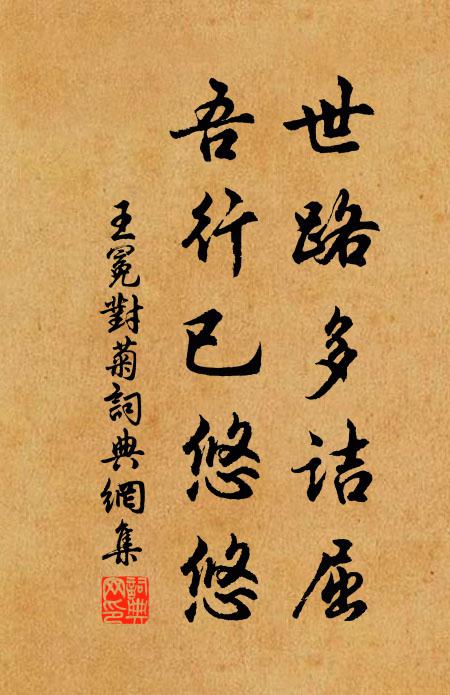 世路多詰屈
吾行已悠悠
王冕對菊詞典網集
詞典網印